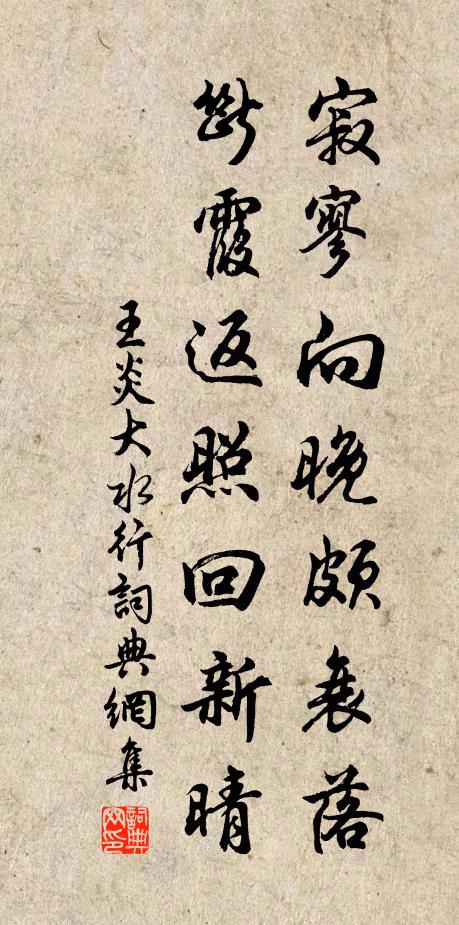 寂寥向晚頗衰落
斷霞返照回新晴
王炎大水行詞典網集
詞典网印